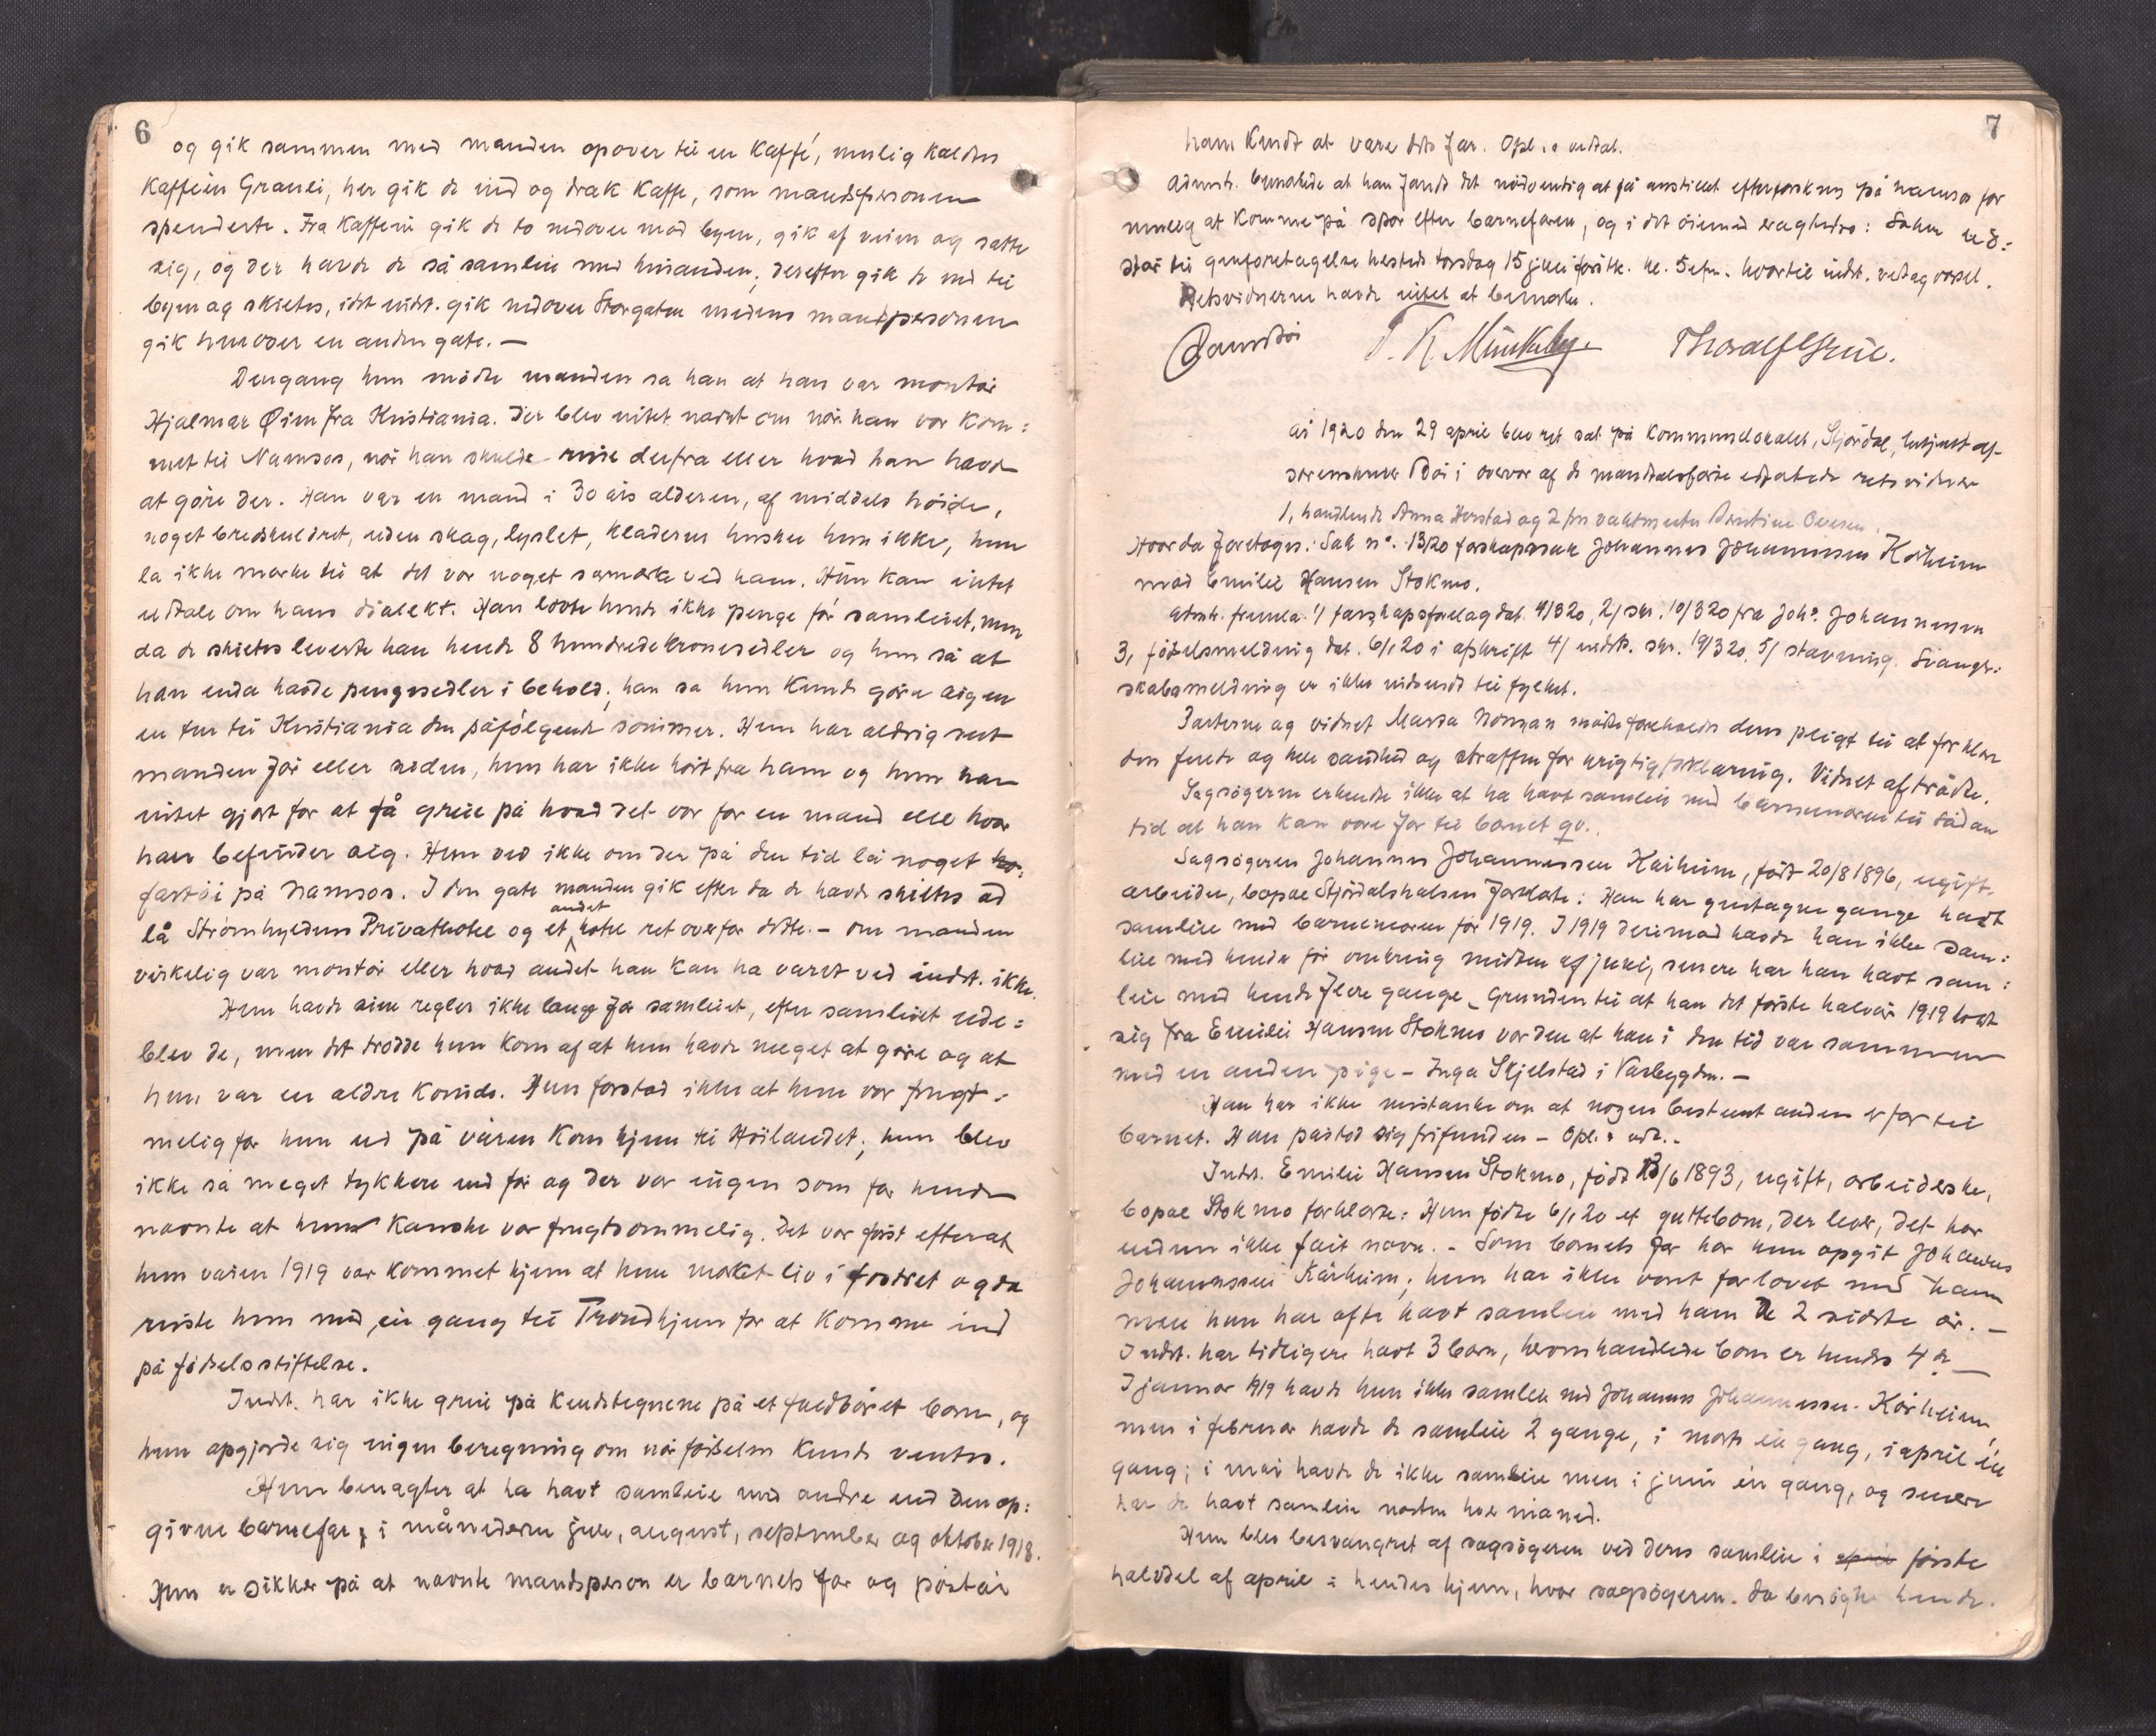 6
og gik sammen med manden opover til en Kaffé, mulig kaldes
Kaffeen Granli, her gik de ind og drak kaffe, som mandspersonen
spenderte. Fra Kaffeen gik de to nedover mod byen, gik af veien og satte
sig, og der havde de så samleie med hinanden; derefter gik de ned til
byen og skiltes, idet indst. gik nedover Storgaten medens mandspersonen
gik henover en anden gate. —
Dengang hun mødte manden sa han at han var montør
Hjalmar Øien fra Kristiania. Der blev intet nævnt om når han var kom=
met til Namsos, når han skulde reise derfra eller hvad han havde
at gøre der. Han var en mand i 30 års alderen, af middels høide,
noget bredskuldret, uden skæg, lyslet, klæderne husker hun ikke, hun
la ikke mærke til at det var noget særmærke ved ham. Hun kan intet
udtale om hans dialekt. Han lovte hende ikke penge for samleiet, men
da de skiltes leverte han hende 8 hundredekronesedler og hun så at
han enda havde pengesedler i behold; han sa hun kunde gøre sig en
en tur til Kristiania den påfølgende sommer. Hun har aldrig set
manden før eller siden, hun har ikke hørt fra ham og hun har
intet gjort for at få greie på hvad det var for en mand eller hvor
han befinder sig. Hun ved ikke om der på den tid lå noget
fartøi på Namsos. I den gate manden gik efter da de havde skiltes ad
lå Strømhyldens Privathotel og et andet hotel ret overfor dette. – Om manden
virkelig var montør eller hvad andet han kan ha været ved indst. ikke.
Hun havde sine regler ikke længe før samleiet, efter samleiet ude=
blev de, men det trodde hun kom af at hun havde meget at gøre og at
hun var en ældre kvinde. Hun forstod ikke at hun var frugt=
melig før hun ud på våren kom hjem til Høilandet; hun blev
ikke så meget tykkere end før og der var ingen som for hende
nævnte at hun kanske var frugtsommelig. Det var først efterat
hun våren 1919 var kommet hjem at hun mærket liv i fostret og da
reiste hun med én gang til Trondhjem for at komme ind
på fødselsstiftelse.
Indst. har ikke greie på kendetegnene på et fuldbåret barn, og
hun opgjorde sig ingen beregning om når fødselen kunde ventes.
Hun benægter at ha havt samleie med andre end den op=
givne barnefar, i månederne juli, august, september og oktober 1918.
Hun er sikker på at nævnte mandsperson er barnets far og påstår
7
ham kendt at være dets far. Opl. o vedtat.
Adminstr. bemærkede at han fandt det nødvendig at få anstillet efterforskning på Namsos for
mulig at komme på spor efter barnefaren, og i det øiemed eragtedes: Saken ud=
står til genforetagelse hersteds torsdag 15 juli førstk. kl. 5 efm. hvortil indst. vedtog varsel.
Retsvidnerne havde intet at bemærke.
P. K. Munkeby
År 1920 den 29 april blev ret sat på Kommunelokalet, Stjørdal, betjent af
sorenskriver Bøi i overvær af de mandtalsførte edfæstede retsvidner
1, handlende Anna Hørstad og 2 fru vaktmester Berntine Ovesen.
Hvorda foretoges: Sak nº. 13/20 farskapssak Johannes Johannessen Kårheim
mod Emilie Hansen Stokmo.
Admst. fremla: 1/ farskapsforelæg dat. 4/3 20, 2/ skr. 10/3 20 fra Johs. Johannessen
3, fødselsmelding dat. 6/1 20 i afskrift 4/ indst. skr. 19/3 20, 5/ stævning. Svanger=
skabsmelding er ikke indsendt til fylket.
Parterne og vidnet Marta Norman møtte foreholdt deres pligt til at forklare
den fulde og hele sandhed og straffen for urigtig forklaring. Vidnet aftrådte.
Sagsøgeren erkendte ikke at ha havt samleie med barnemoren til sådan
tid at han kan være far til barnet qv..
Sagsøgeren Johannes Johannessen Kårheim, født 20/8 1896, ugift,
arbeider, bopæl Stjørdalshalsen forklarte: Han har gentagne gange havt
samleie med barnemoren før 1919. I 1919 derimod havde han ikke sam=
leie med hende før omkring midten af juni, senere har han havt sam=
leie med hende flere gange. Grunden til at han det første halvår 1919 holdt
sig fra Emilie Hansen Stokmo var den at han i den tid var sammen
med en anden pige – Inga Skjelstad i Vårbygden. —
Han har ikke mistanke om at nogen bestemt anden er far til
barnet. Han påstod sig frifunden – Opl. o vedt. –
Indst. Emilie Hansen Stokmo, født 13/6 1893, ugift, arbeiderske,
bopæl Stokmo forklarte: Hun fødte 6/1 20 et guttebarn, der lever, det har
endnu ikke fået navn. – Som barnets far har hun opgit Johannes
Johannessen Kårheim; hun har ikke været forlovet med ham
men hun har ofte havt samleie med ham de 2 sidste år. —
Indst. har tidligere havt 3 barn, heromhandlede barn er hendes 4de —
I januar 1919 havde hun ikke samleie med Johannes Johannessen Kårheim,
men i februar havde de samleie 2 gange, i mars én gang, i april én
gang; i mai havde de ikke samleie men i juni én gang, og senere
har de havt samleie næsten hver måned.
Hun blev besvangret af sagsøgeren ved deres samleie i første
halvdel af april i hendes hjem, hvor sagsøgeren da besøgte hende.